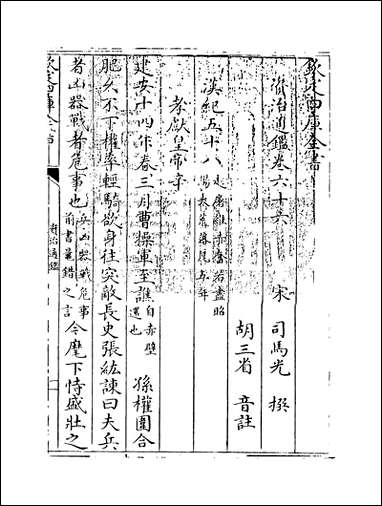 欽定四庫全書
資治通鑑卷六十六
宋 司馬光 撰
胡三省 音註
漢紀五十八起屠維赤奮若盡昭陽大荒落凡五年
孝獻皇帝辛
建安十四年春三月曹操軍至譙自赤壁還也 孫權圍合
肥久不下權率輕騎欲身往突敵長史張紘諫曰夫兵
者凶器戰者危事也兵凶器戰危事前書鼂錯之言今麾下恃盛壯之
欽定四庫全書
資治通鑑
一